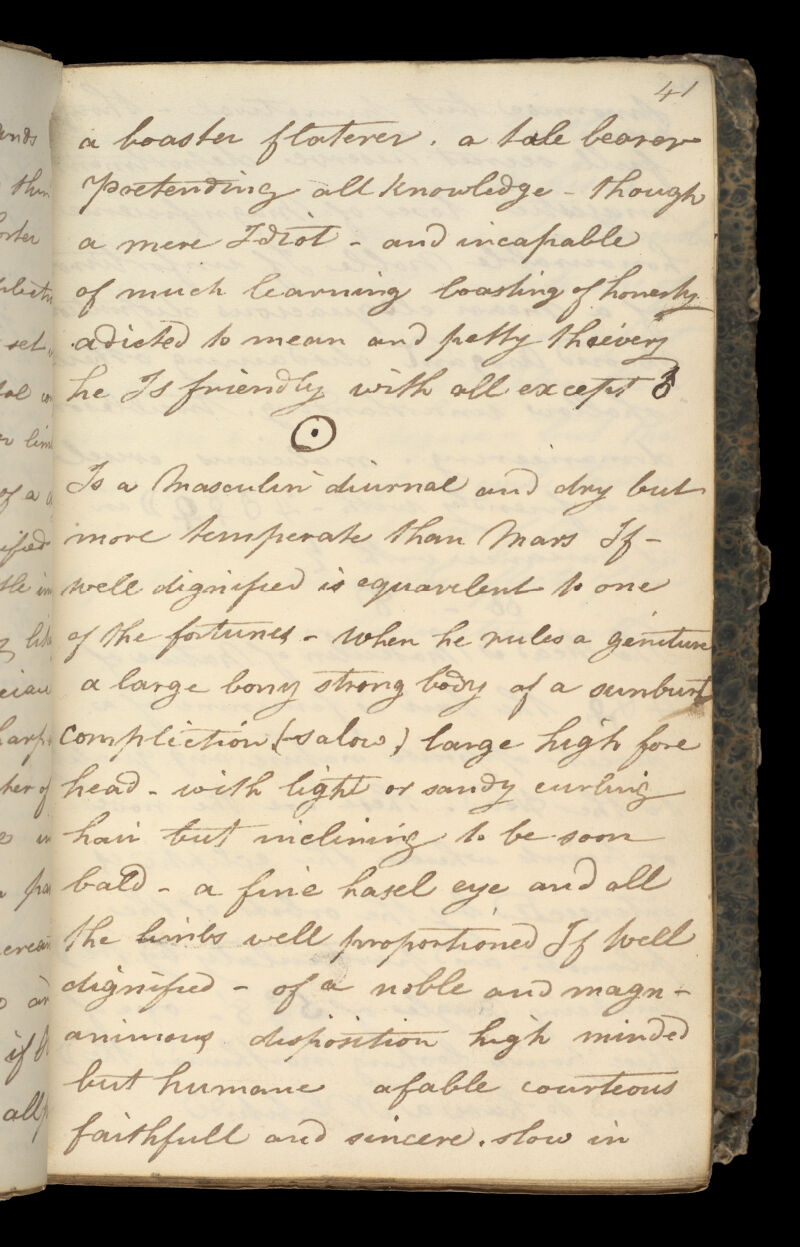 41
a boaster flaterer. a tale bearer
Pretending all knowledge - though
a mere Idiot - and incapable
of much learning boasting of honesty
adicted to mean and petty theivery
he Is friendly with all except ♂
☉
Is a Masculin diurnal and dry but
more temperate than Mars If -
well dignified is equavelent to one
of the fortunes - when he rules a geniture
a large bony strong body of a sunburt
Compliction (salow) large high fore
head - with light or sandy curling
hair but inclining to be soon
bald - a fine hasel eye and all
the limbs well proportioned If Well
dignified - of a noble and magn-
animous disposition high minded
but humane afable courteous
faithfull and sincere. slow in